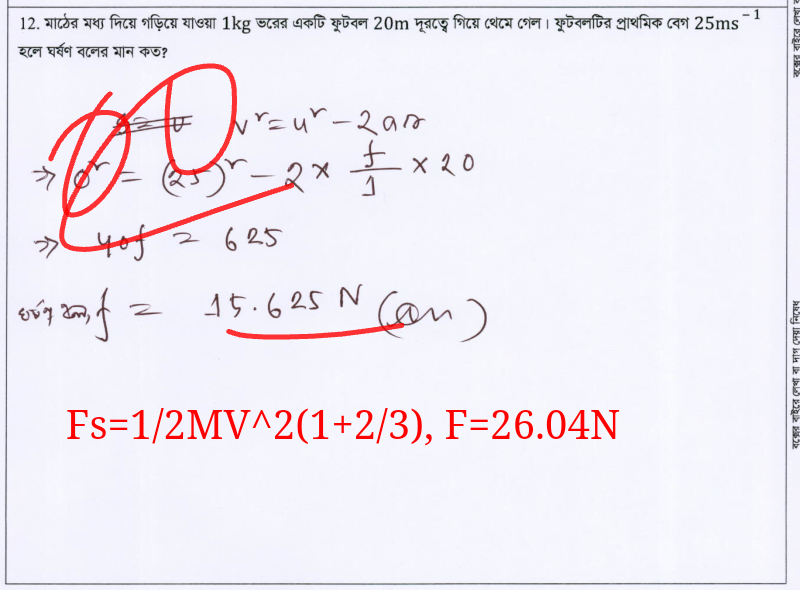 12. মাঠের মধ্য দিয়ে গড়িয়ে যাওয়া 1kg ভরের একটি ফুটবল 20m দূরত্বে গিয়ে থেমে গেল। ফুটবলটির প্রাথমিক বেগ 25ms⁻¹
হলে ঘর্ষণ বলের মান কত?
v² = u² - 2as
⇒ 0² = (25)² - 2 × f/1 × 20
⇒ 40f = 625
ঘর্ষণ বল, f = 15.625 N (Ans)
Fs=1/2MV^2(1+2/3), F=26.04N
বক্সের বাইরে লেখা বা দাগ দেয়া নিষেধ